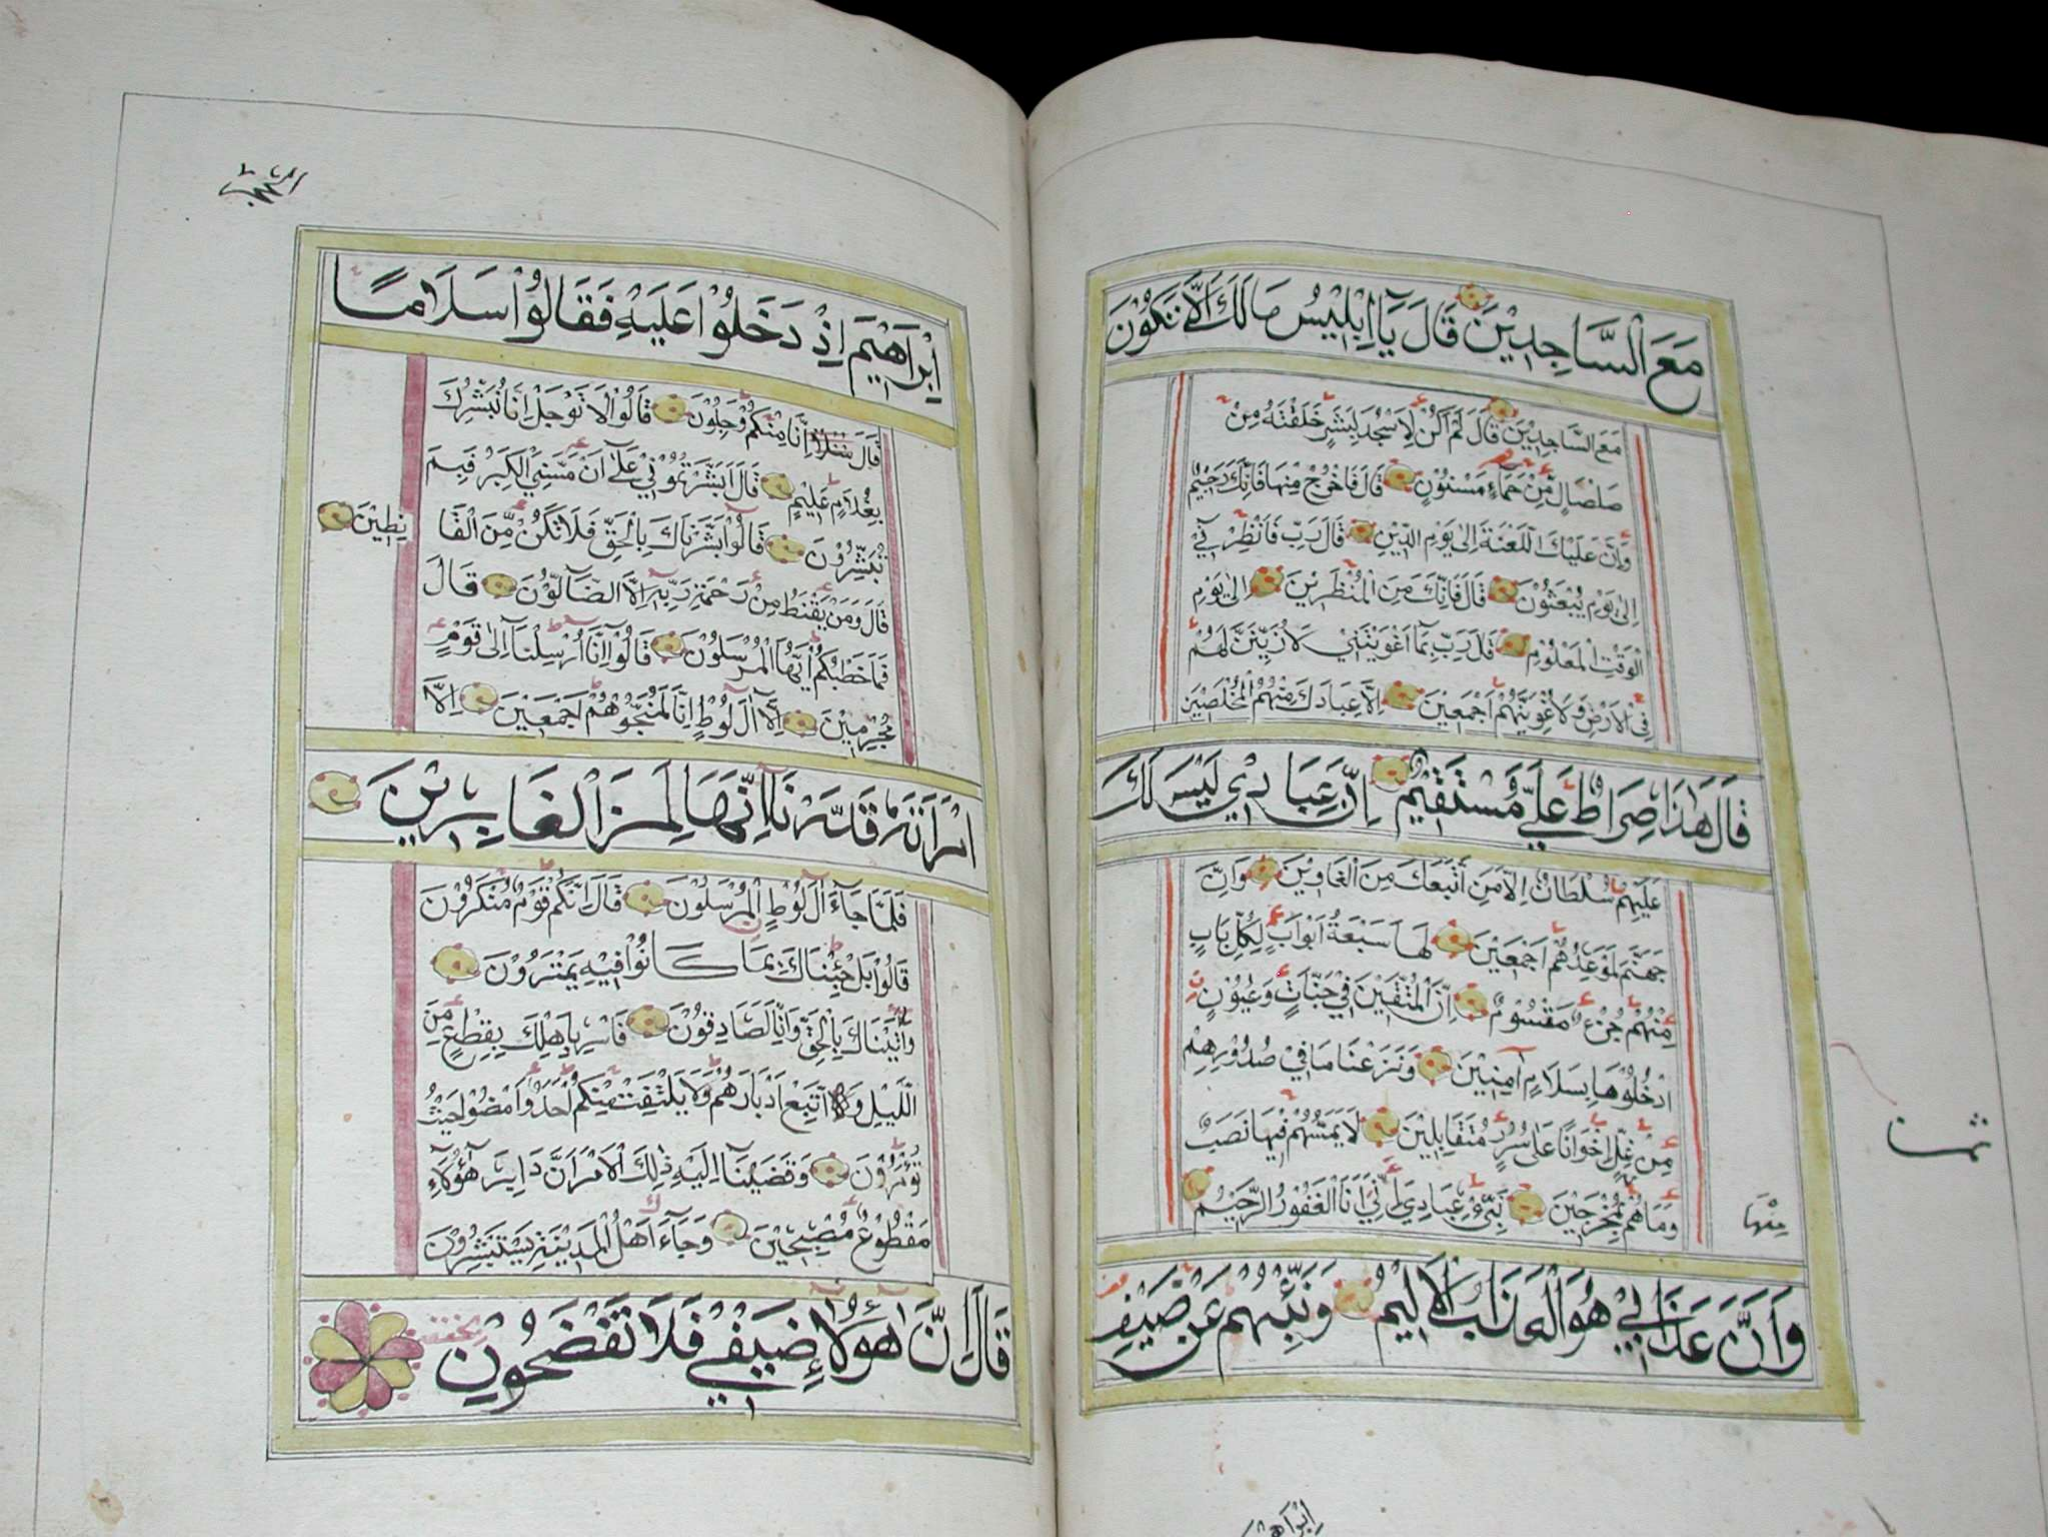 مَعَ السَّاجِدِيْنَ قَالَ يَا اِبْلِيْسُ مَالَكَ اَلَّا تَكُوْنَ
مَعَ السَّاجِدِيْنَ قَالَ لَمْ اَكُنْ لِاَسْجُدَ لِبَشَرٍ خَلَقْتَهُ مِنْ
صَلْصَالٍ مِّنْ حَمَاءٍ مَسْنُوْنٍ قَالَ فَاخْرُجْ مِنْهَا فَاِنَّكَ رَجِيْمٌ
وَاِنَّ عَلَيْكَ اللَّعْنَةَ اِلٰى يَوْمِ الدِّيْنِ قَالَ رَبِّ فَانْظِرْنِيْ
اِلٰى يَوْمِ يُبْعَثُوْنَ قَالَ فَاِنَّكَ مِنَ الْمُنْظَرِيْنَ اِلٰى يَوْمِ
الْوَقْتِ الْمَعْلُوْمِ قَالَ رَبِّ بِمَا اَغْوَيْتَنِيْ لَاُزَيِّنَنَّ لَهُمْ
فِى الْاَرْضِ وَلَاُغْوِيَنَّهُمْ اَجْمَعِيْنَ اِلَّا عِبَادَكَ مِنْهُمُ الْمُخْلَصِيْنَ
قَالَ هٰذَا صِرَاطٌ عَلَيَّ مُسْتَقِيْمٌ اِنَّ عِبَادِيْ لَيْسَ لَكَ
عَلَيْهِمْ سُلْطَانٌ اِلَّا مَنِ اتَّبَعَكَ مِنَ الْغَاوِيْنَ وَاِنَّ
جَهَنَّمَ لَمَوْعِدُهُمْ اَجْمَعِيْنَ لَهَا سَبْعَةُ اَبْوَابٍ لِكُلِّ بَابٍ
مِنْهُمْ جُزْءٌ مَقْسُوْمٌ اِنَّ الْمُتَّقِيْنَ فِيْ جَنَّاتٍ وَعُيُوْنٍ
اُدْخُلُوْهَا بِسَلَامٍ آمِنِيْنَ وَنَزَعْنَا مَا فِيْ صُدُوْرِهِمْ
مِنْ غِلٍّ اِخْوَانًا عَلٰى سُرُرٍ مُتَقَابِلِيْنَ لَا يَمَسُّهُمْ فِيْهَا نَصَبٌ
وَمَا هُمْ بِمُخْرَجِيْنَ نَبِّئْ عِبَادِيْ اَنِّيْ اَنَا الْغَفُوْرُ الرَّحِيْمُ
مِنْهَا
وَاَنَّ عَذَابِيْ هُوَ الْعَذَابُ الْاَلِيْمُ وَنَبِّئْهُمْ عَنْ ضَيْفِ
ثمن
اِبْرَاهِيْمَ اِذْ دَخَلُوْا عَلَيْهِ فَقَالُوْا سَلَامًا
قَالَ اِنَّا مِنْكُمْ وَجِلُوْنَ قَالُوْا لَا تَوْجَلْ اِنَّا نُبَشِّرُكَ
بِغُلَامٍ عَلِيْمٍ قَالَ اَبَشَّرْتُمُوْنِيْ عَلٰى اَنْ مَّسَّنِيَ الْكِبَرُ فَبِمَ
تُبَشِّرُوْنَ قَالُوْا بَشَّرْنَاكَ بِالْحَقِّ فَلَا تَكُنْ مِّنَ الْقَا
نِطِيْنَ
قَالَ وَمَنْ يَقْنَطُ مِنْ رَحْمَةِ رَبِّهِ اِلَّا الضَّالُّوْنَ قَالَ
فَمَا خَطْبُكُمْ اَيُّهَا الْمُرْسَلُوْنَ قَالُوْا اِنَّا اُرْسِلْنَا اِلٰى قَوْمٍ
مُجْرِمِيْنَ اِلَّا آلَ لُوْطٍ اِنَّا لَمُنَجُّوْهُمْ اَجْمَعِيْنَ اِلَّا
امْرَاَتَهُ قَدَّرْنَا اِنَّهَا لَمِنَ الْغَابِرِيْنَ
فَلَمَّا جَاءَ آلَ لُوْطٍ الْمُرْسَلُوْنَ قَالَ اِنَّكُمْ قَوْمٌ مُنْكَرُوْنَ
قَالُوْا بَلْ جِئْنَاكَ بِمَا كَانُوْا فِيْهِ يَمْتَرُوْنَ
وَاَتَيْنَاكَ بِالْحَقِّ وَاِنَّا لَصَادِقُوْنَ فَاَسْرِ بِاَهْلِكَ بِقِطْعٍ مِنَ
اللَّيْلِ وَاتَّبِعْ اَدْبَارَهُمْ وَلَا يَلْتَفِتْ مِنْكُمْ اَحَدٌ وَامْضُوْا حَيْثُ
تُؤْمَرُوْنَ وَقَضَيْنَا اِلَيْهِ ذٰلِكَ الْاَمْرَ اَنَّ دَابِرَ هٰؤُلَاءِ
مَقْطُوْعٌ مُصْبِحِيْنَ وَجَاءَ اَهْلُ الْمَدِيْنَةِ يَسْتَبْشِرُوْنَ
قَالَ اِنَّ هٰؤُلَاءِ ضَيْفِيْ فَلَا تَفْضَحُوْنِ